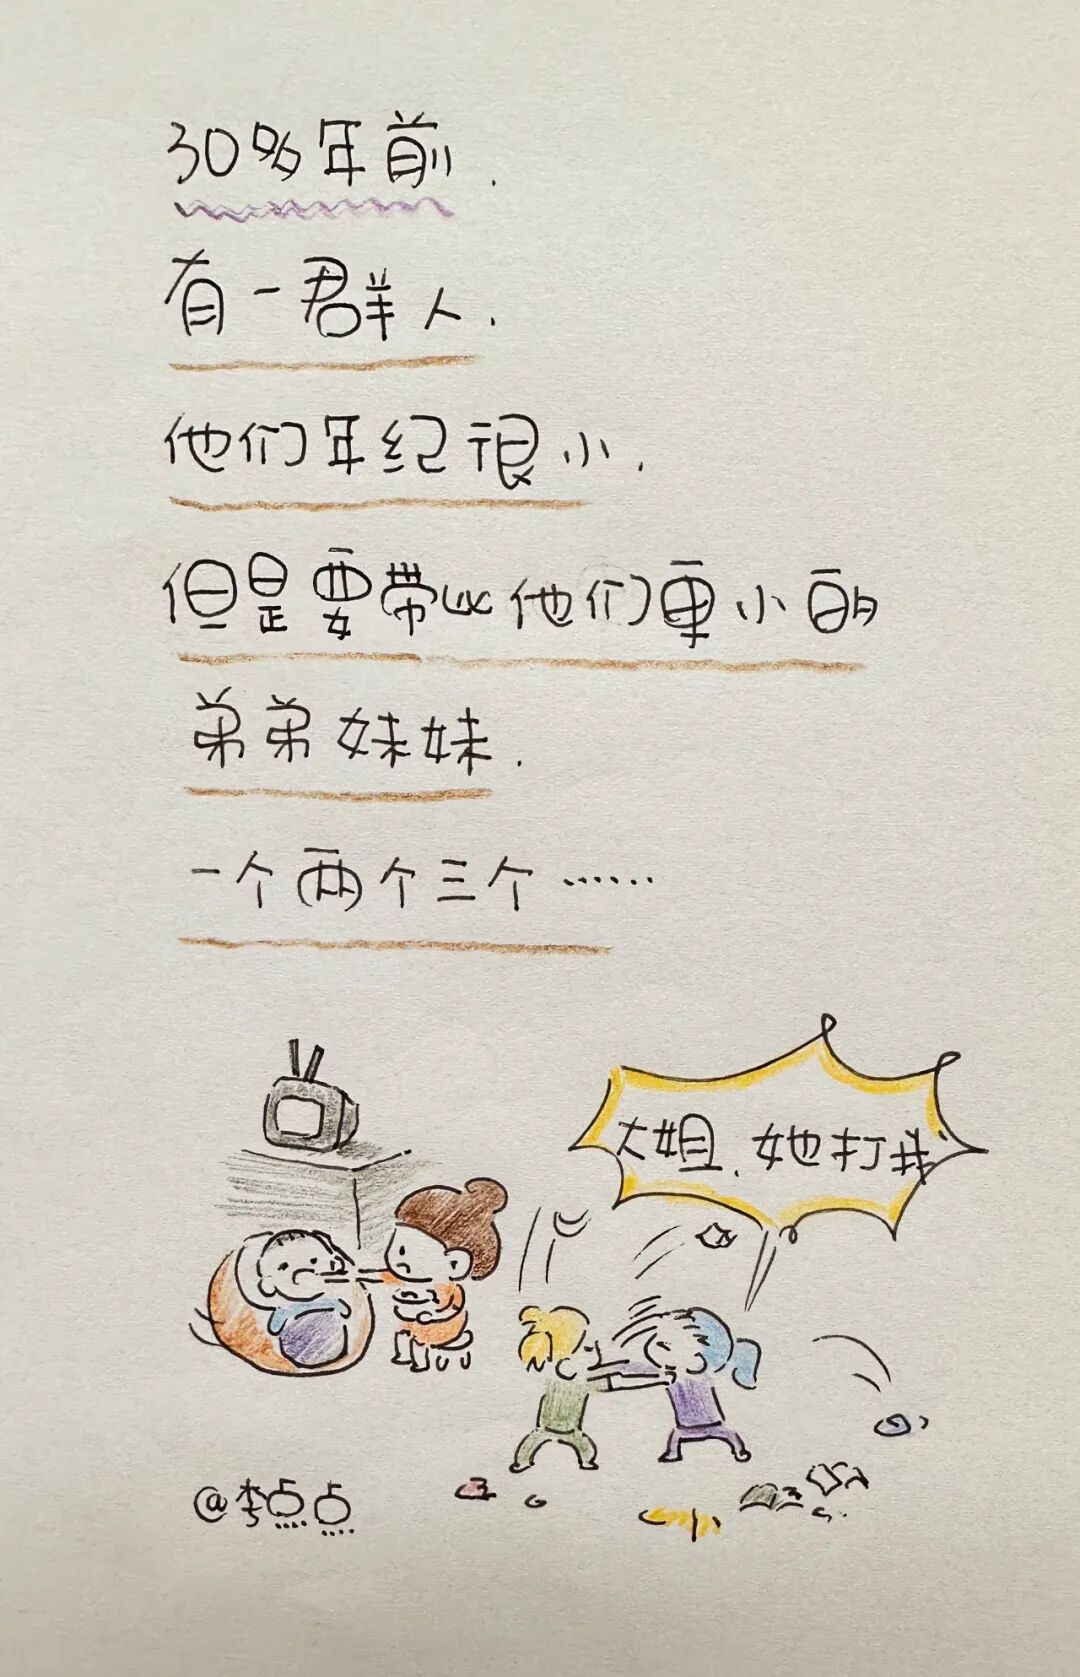 30多年前.
有一群人.
他们年纪很小.
但是要带比他们更小的
弟弟妹妹.
一个两个三个……
大姐.她打我
@李点点